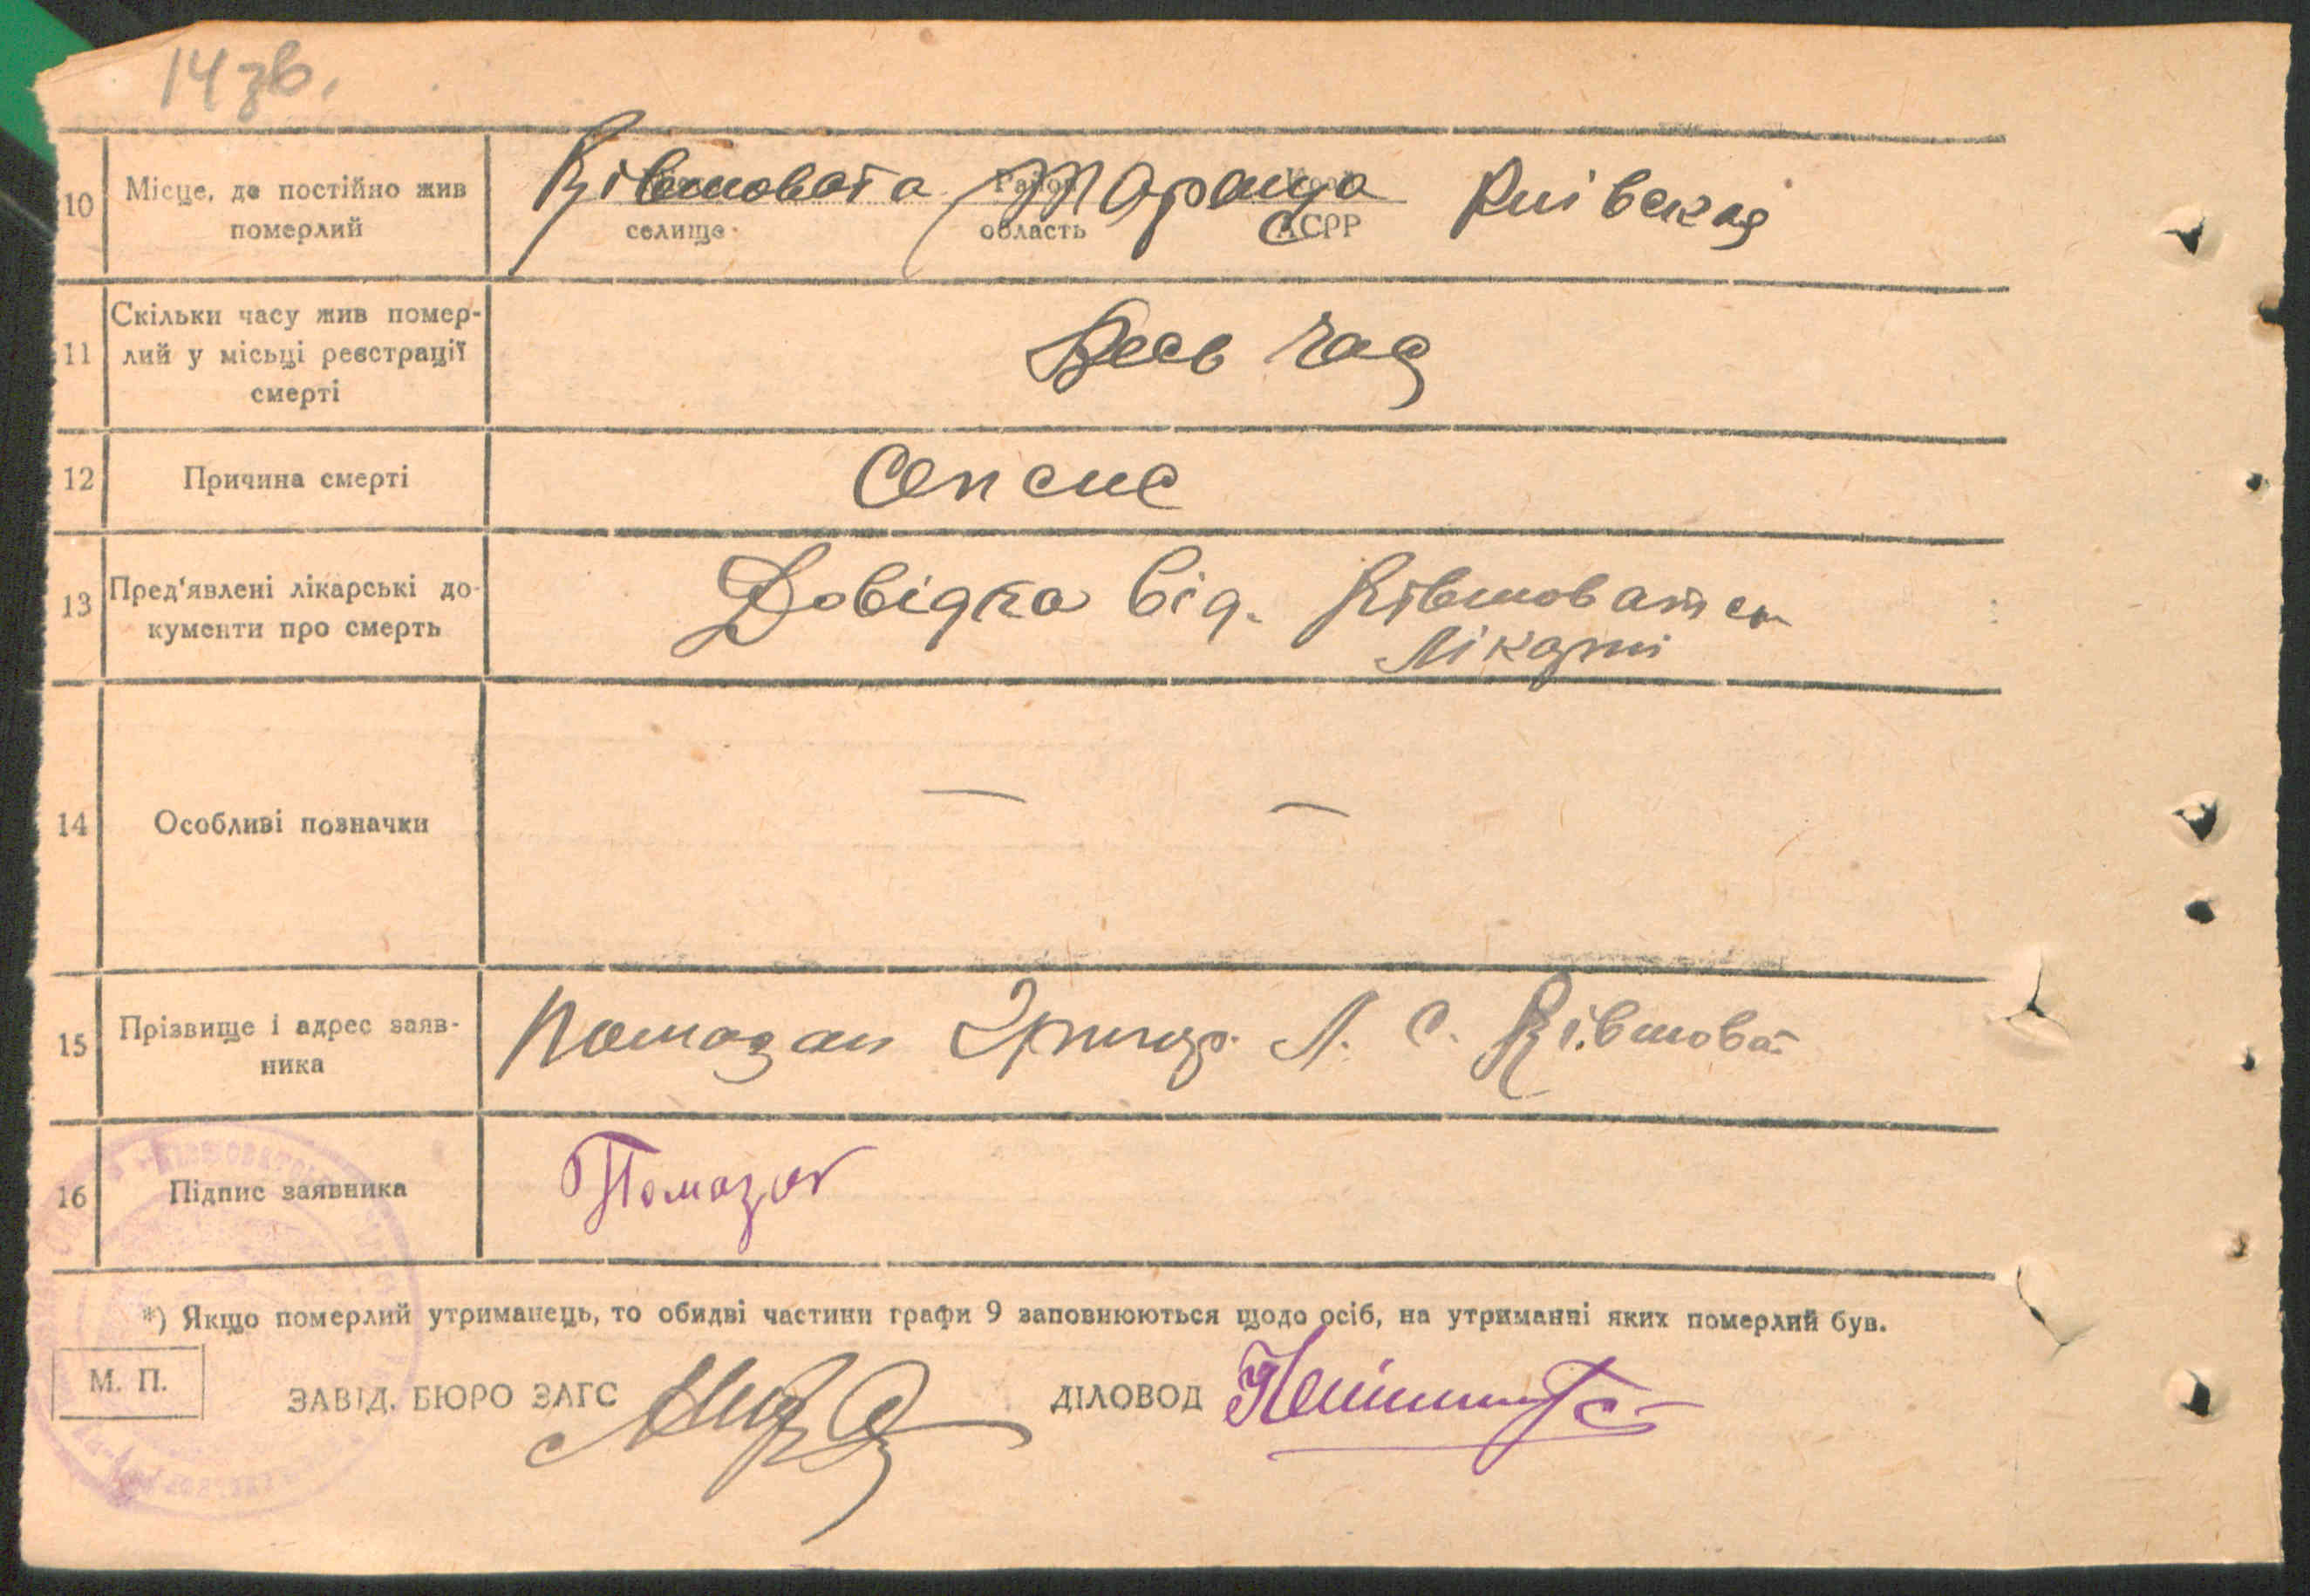 14 зв.
10 Місце, де постійно жив померлий
Ківшовата Тараща Київская
селище Район область АСРР
11 Скільки часу жив помер-
лий у місьці реєстрації
смерті
Весь час
12 Причина смерті
Сепсис
13 Пред'явлені лікарські до-
кументи про смерть
Довідка від. Ківшоватск
Лікарні
14 Особливі позначки
— —
15 Прізвище і адрес заяв-
ника
Помазан Григор. Л. С. Ківшоват.
16 Підпис заявника
Помазан
*) Якщо померлий утриманець, то обидві частини графи 9 заповнюються щодо осіб, на утриманні яких померлий був.
М. П.
ЗАВІД. БЮРО ЗАГС
ДІЛОВОД